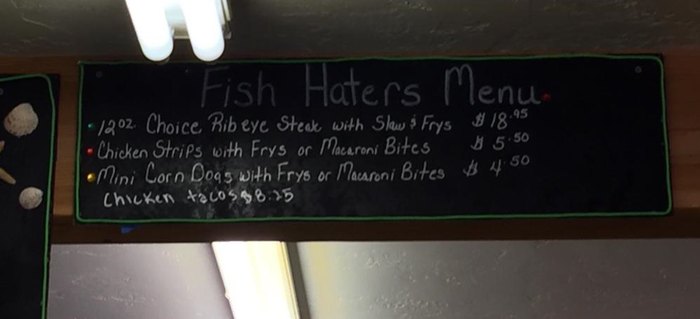 Fish Haters Menu
12oz. Choice Ribeye Steak with Slaw & Frys $18.95
Chicken Strips with Frys or Macaroni Bites $5.50
Mini Corn Dogs with Frys or Macaroni Bites $4.50
Chicken tacos $8.25